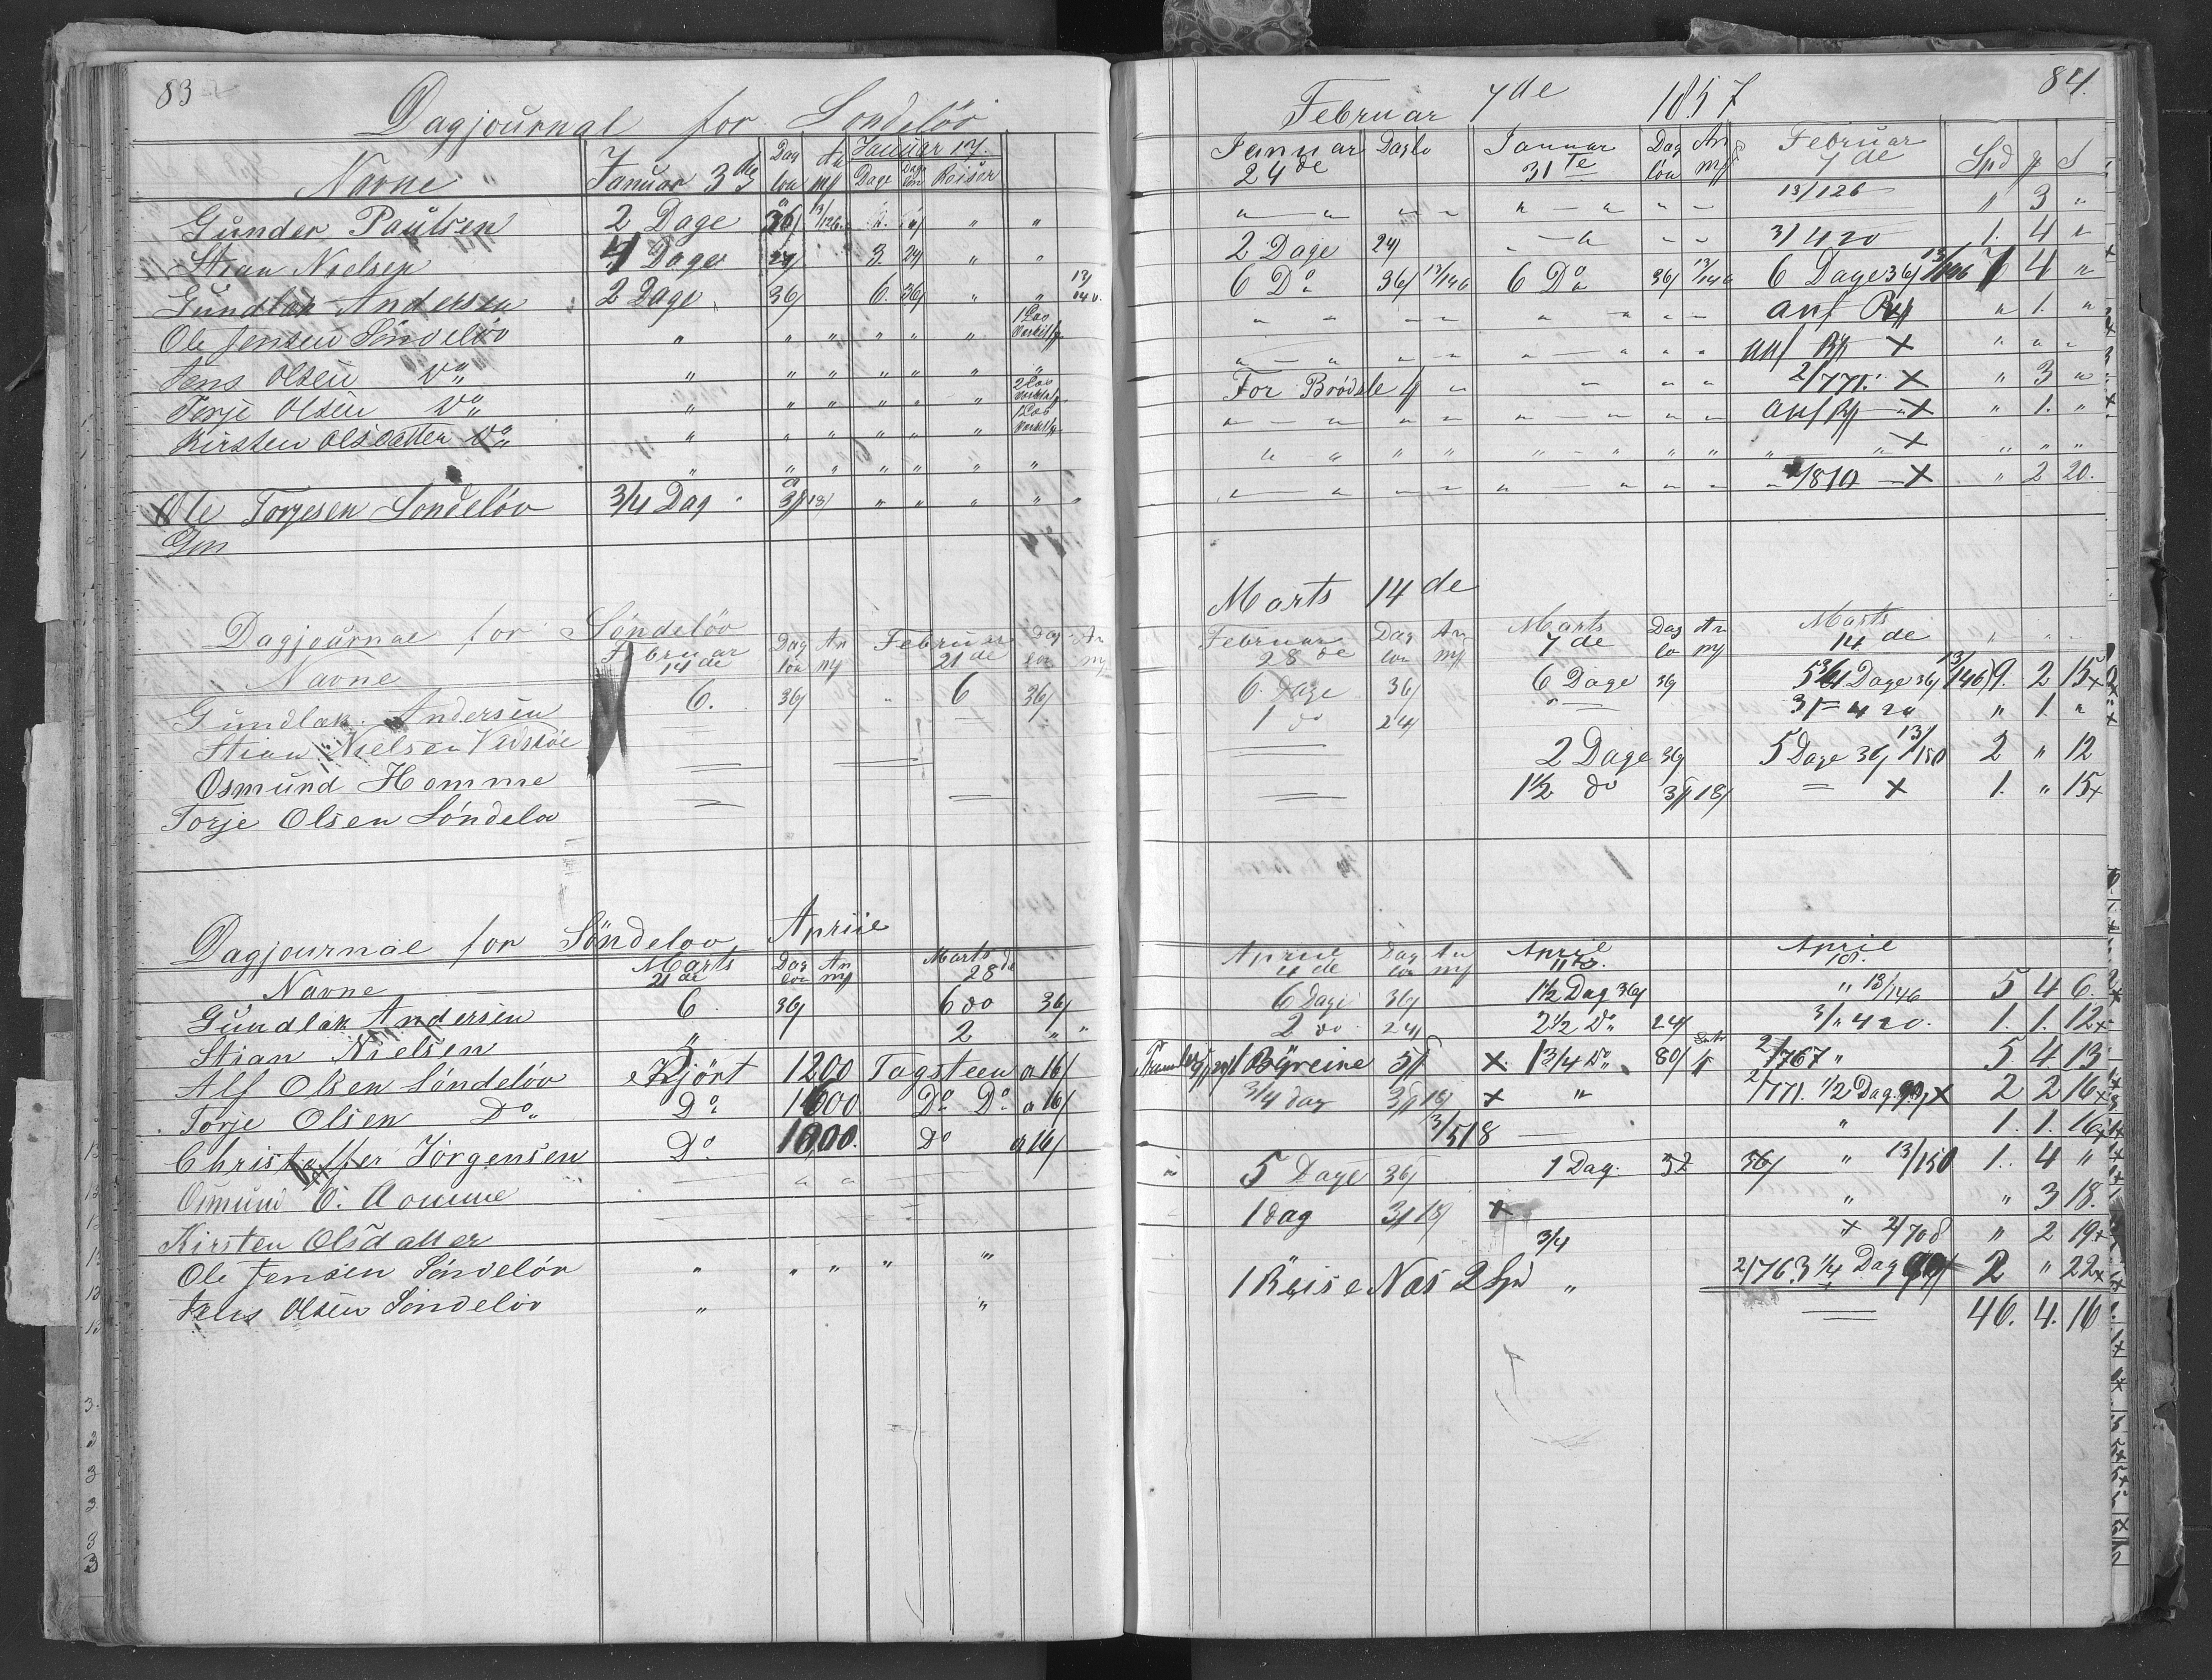 83
Dagjournal for Sondeløv
Navne Januar 3de Dag løn An m Januar 17. Dage Dag løn Reiser
Gunder Paulsen 2 Dage 36/ 13/126 " "
Stian Nielsen 4 Dage 24/ 3. 24/ " "
Gundlak Andersen 2 Dage 36/ 6. 36/ " " 13/140.
Ole Jensen Søndeløv " " " " " " 1 Las
Jens Olsen Do " " " " " " "
Torje Olsen Do " " " " " " 2 Las
Kirsten Olsdatter Do " " " " " " 1 Las
" " " " " " "
Ole Torjesen Sondeløv 3/4 Dag " 3 18/ " " " " "
Gun
Dagjournal for Søndeløv
Navne Februar 14de Dag løn An m Februar 21de Dag løn An m
Gundlak Andersen 6. 36/ 6 36/
Stian Nielsen Vedstøe
Osmund Homme
Torje Olsen Søndelov
Dagjournal for Søndelov Apriie
Navne Marts 21de Dag løn An m Marts 28de
Gundlak Andersen 6 36/ 6 do 36/
Stian Nielsen 5 2 " "
Alf Olsen Søndeløv Kjørt 1200 Tagsteen a 16/
Torje Olsen Do Do 1600 Do Do a 16/
Christoffer Jørgensen Do 1000. Do a 16/
Osmund O. Aomme
Kirsten Olsdatter
Ole Jensen Søndeløv " " " " "
Jens Olsen Søndeløv " "
84.
Februar 7de 1857
Januar 24de Daglø Januar 31te Dag løn An m Februar 7de Spd S
" — " " — " — " " — 13/126 " 3 "
2 Dage 24/ " — " " " 3/420 1. 4 "
6 Do 36/ 13/146 6 Do 36/ 13/146 6 Dage 36/ 13/146 7 4 "
" — " " — " — " " — anf " 1. "
" — " " — " — " " " anf X " " "
For Brødste 4 " — " " 2/771. X " 3 "
" — " " — " — " " " anf X " 1. "
" — " " " " — " " " " " X " " "
" — " " — " — " " " " 1810 — X " 2 20.
Marts 14de
Februar 28de Dag løn An m Marts 7de Dag lø An m Marts 14de " "
6. Dage 36/ 6 Dage 36/ 5 3/4 Dage 36/ 13/146 9. 2 15x
1 do 24 " — 3/ = 420 " 1. "
2 Dage 36/ 5 Dage 36/ 13/150 2 " 12
1 1/2 do 3 18/ = X 1. " 15x
Apriie 4de Dag løn An m April 11te. April 18.
6 Dage 36/ 1 1/2 Dag 36/ " 13/146 5 4 6.
2 do. 24/ 2 1/2 Do 24/ 3/ " 420. 1. 1. 12x
X. 1 3/4 Do 80/ 2/767 " 5 4. 13
3/4 dag 3 18/ X " 2/771. 1/2 Dag X 2 2 16x
13/518 — " 1. 1. 16x
5 Dage 36/ 1 Dag. 32 36/ " 13/150 1. 4 "
1 dag 3 18/ X " " 3 18.
3/4 X 2/708 " 2 19x
1 Reise Næs 2 Spd " 2/763 1/4 Dag 2 " 22x
46. 4. 16